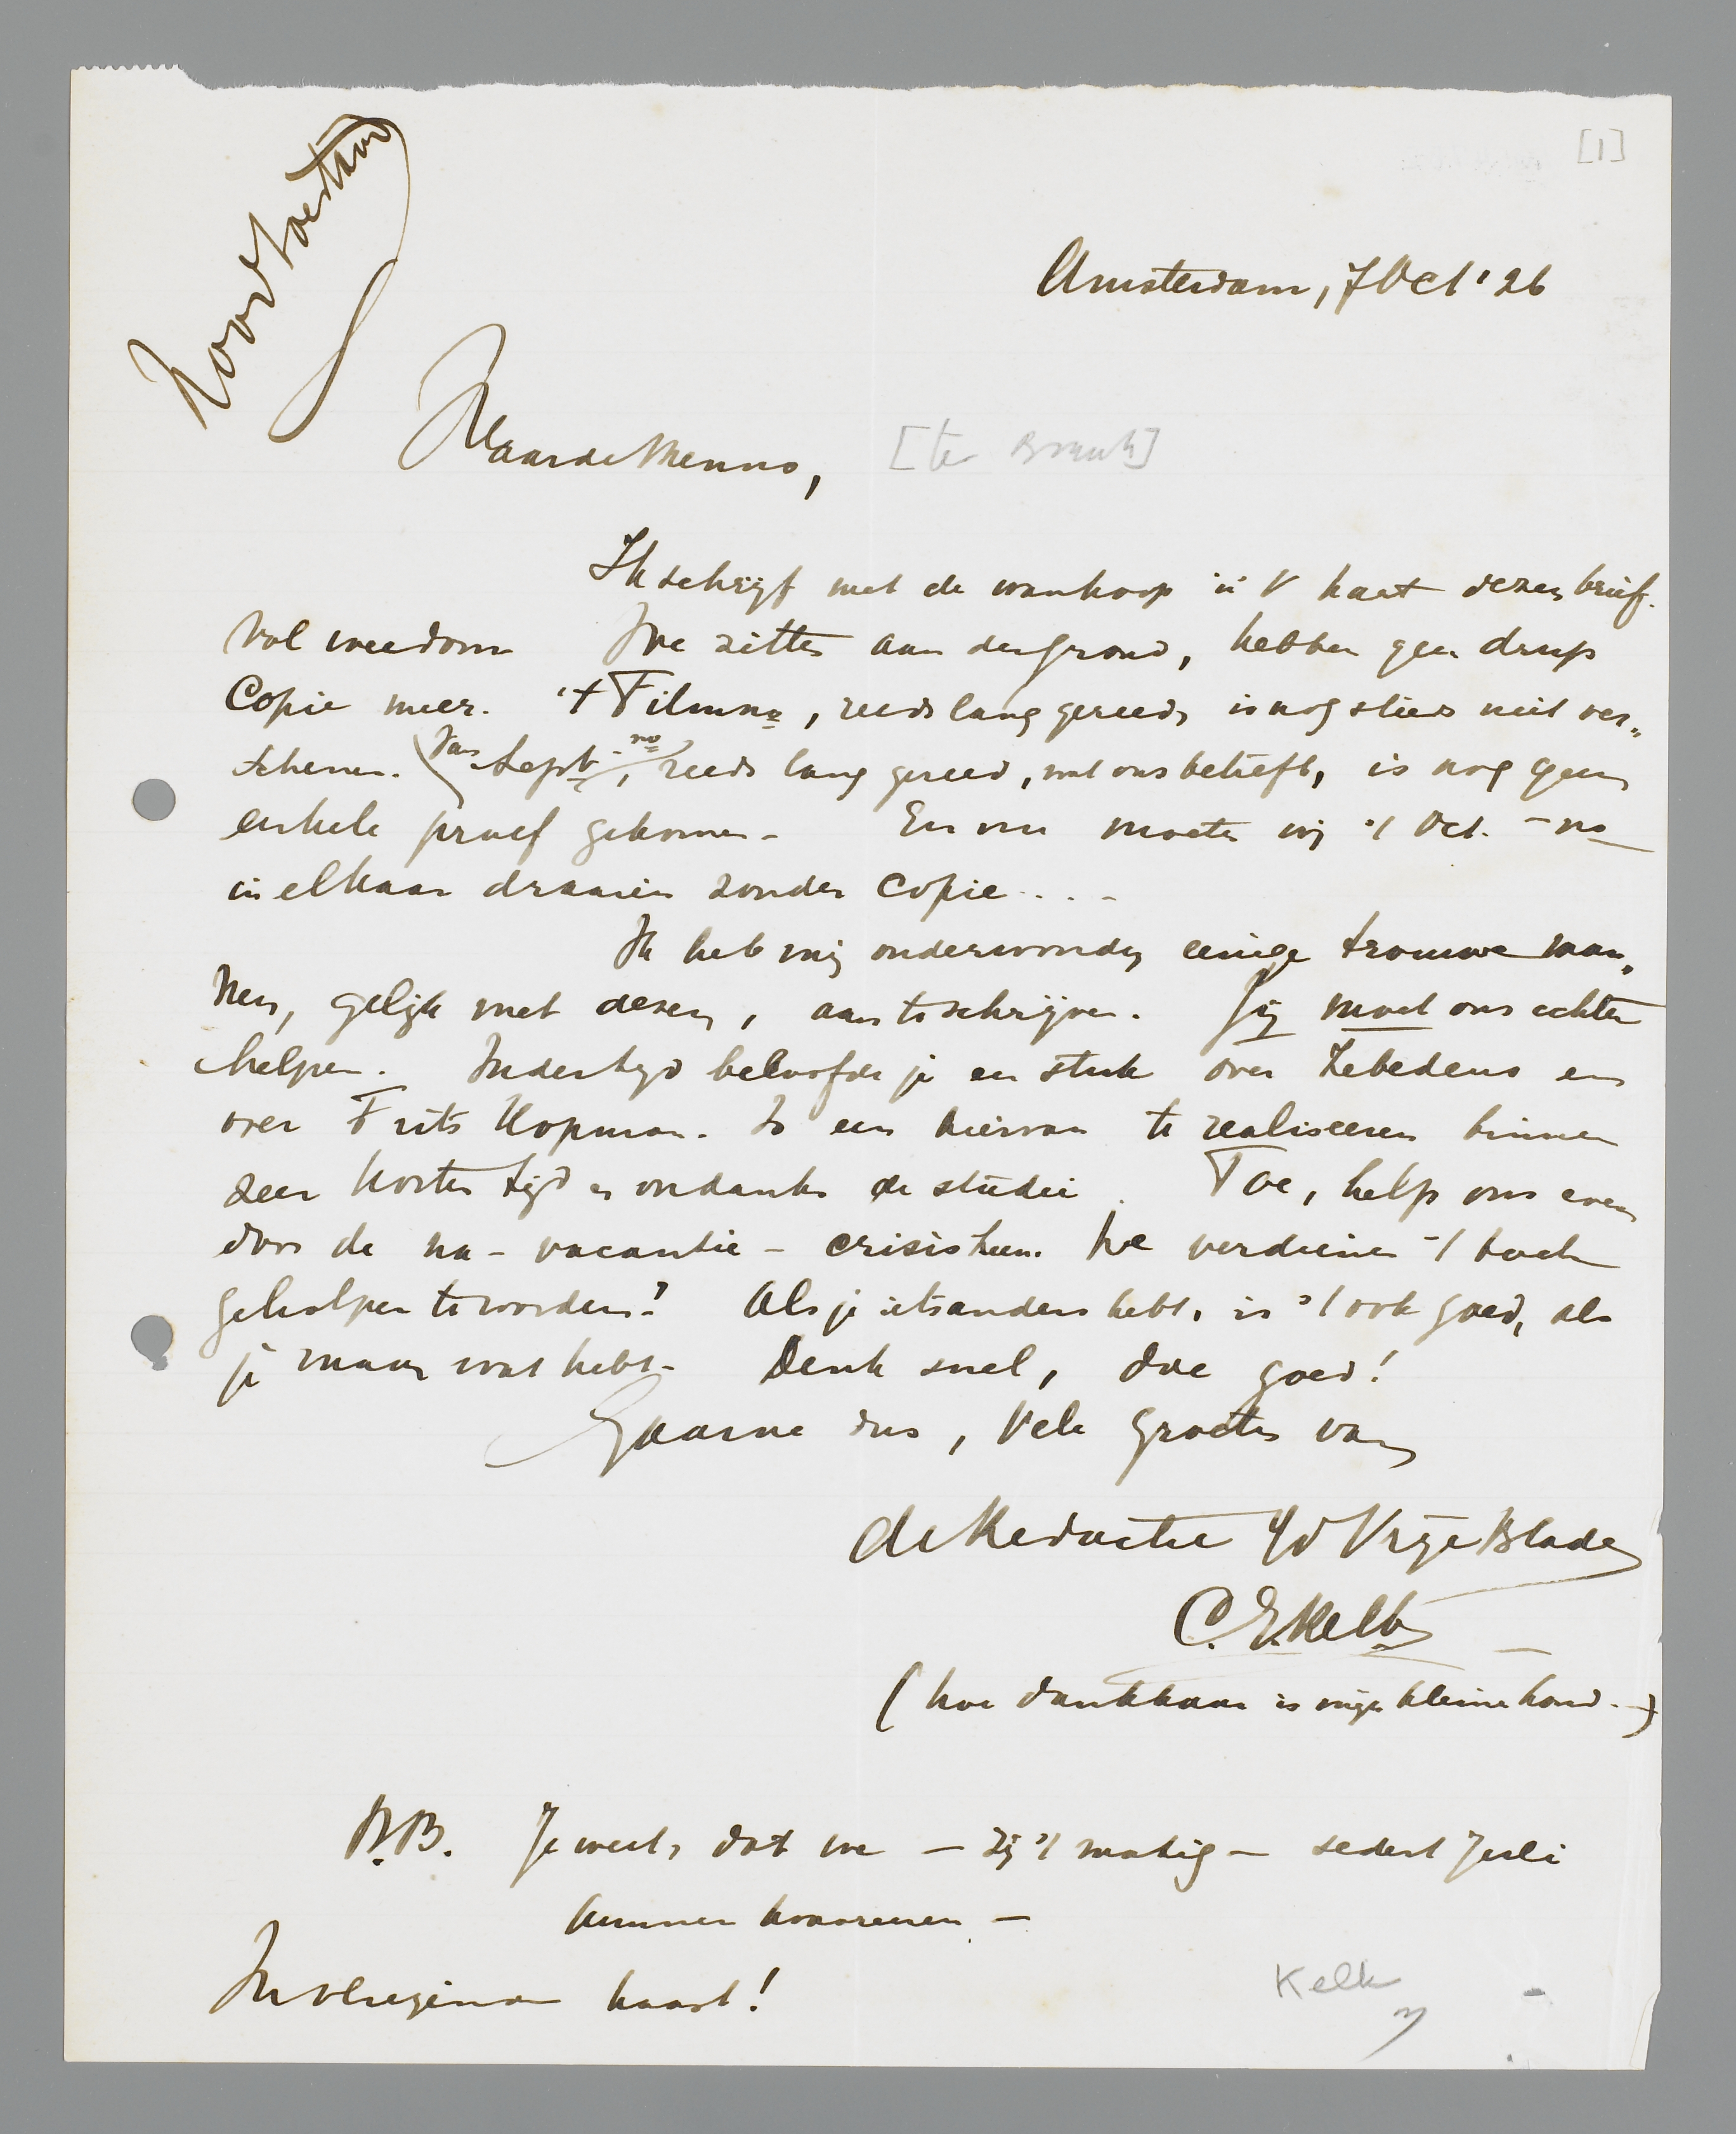 Noodtoestand
[1]
Amsterdam, 7 Oct '26
Waarde Menno,
[ter Braak]
Ik schrijf met de wanhoop in 't hart dezen brief.
Vol weedom We zitten aan den grond, hebben geen drup
Copie meer. 't Filmno, reeds lang gereed, is nog steeds niet ver„
schenen. Van Sept. no, reeds lang gereed, wat ons betreft, is nog geen
enkele proef gekomen. En nu moeten wij 't Oct. - no
in elkaar draaien zonder Copie....
Ik heb mij onderwonden eenige trouwe man„
nen, gelijk met dezen, aan te schrijven. Jij moet ons echter
helpen. Indertijd beloofde je een stuk over Zebedeus en
over Frits Hopman. Is een hiervan te realiseeren binnen
zeer korten tijd en ondanks de studie. Toe, help ons even
door de na - vacantie - crisis heen. We verdienen 't toch
geholpen te worden? Als je iets anders hebt, is 't ook goed, als
je maar wat hebt. Denk snel, doe goed!
Gaarne dus, Vele groeten van
de Redactie v/d Vrije Bladen
C.J. Kelk
(hoe dankbaar is mijn kleine hand -)
N.B. Je weet, dat we - zij 't matig - sedert Juli
kunnen honoreeren -
In vliegende haast!
Kelk